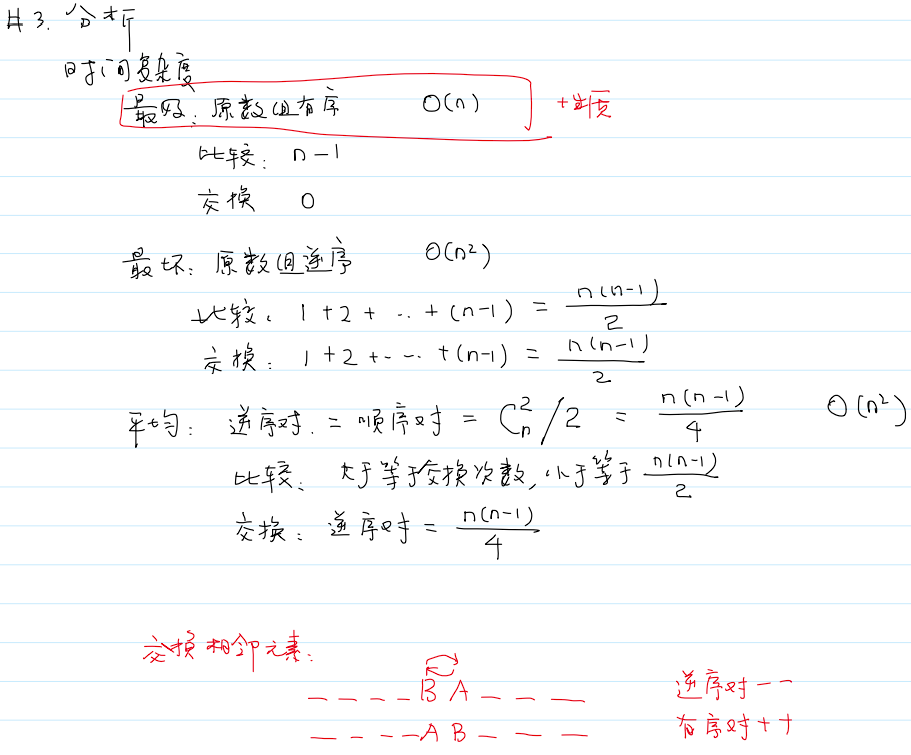 #3. 分析
时间复杂度
最好: 原数组有序 O(n)
比较: n-1
交换 0
最坏: 原数组逆序 O(n²)
比较: 1+2+...+(n-1) = n(n-1)/2
交换: 1+2+...+(n-1) = n(n-1)/2
平均: 逆序对 = 顺序对 = C_n^2/2 = n(n-1)/4 O(n²)
比较: 大于等于交换次数, 小于等于 n(n-1)/2
交换: 逆序对 = n(n-1)/4
交换相邻元素:
____BA___ 逆序对--
____AB___ 有序对++